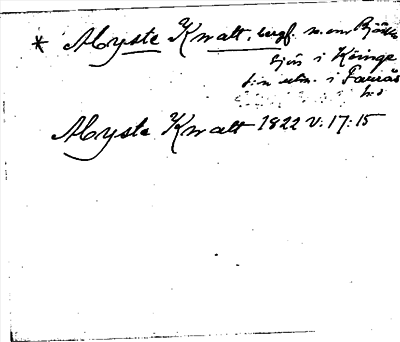 * Myste Knalt, bergf. n. om Björke
sjön i Köinge
s:n utm. i Faurås
hd
Myste Knalt 1822 V: 17: 15